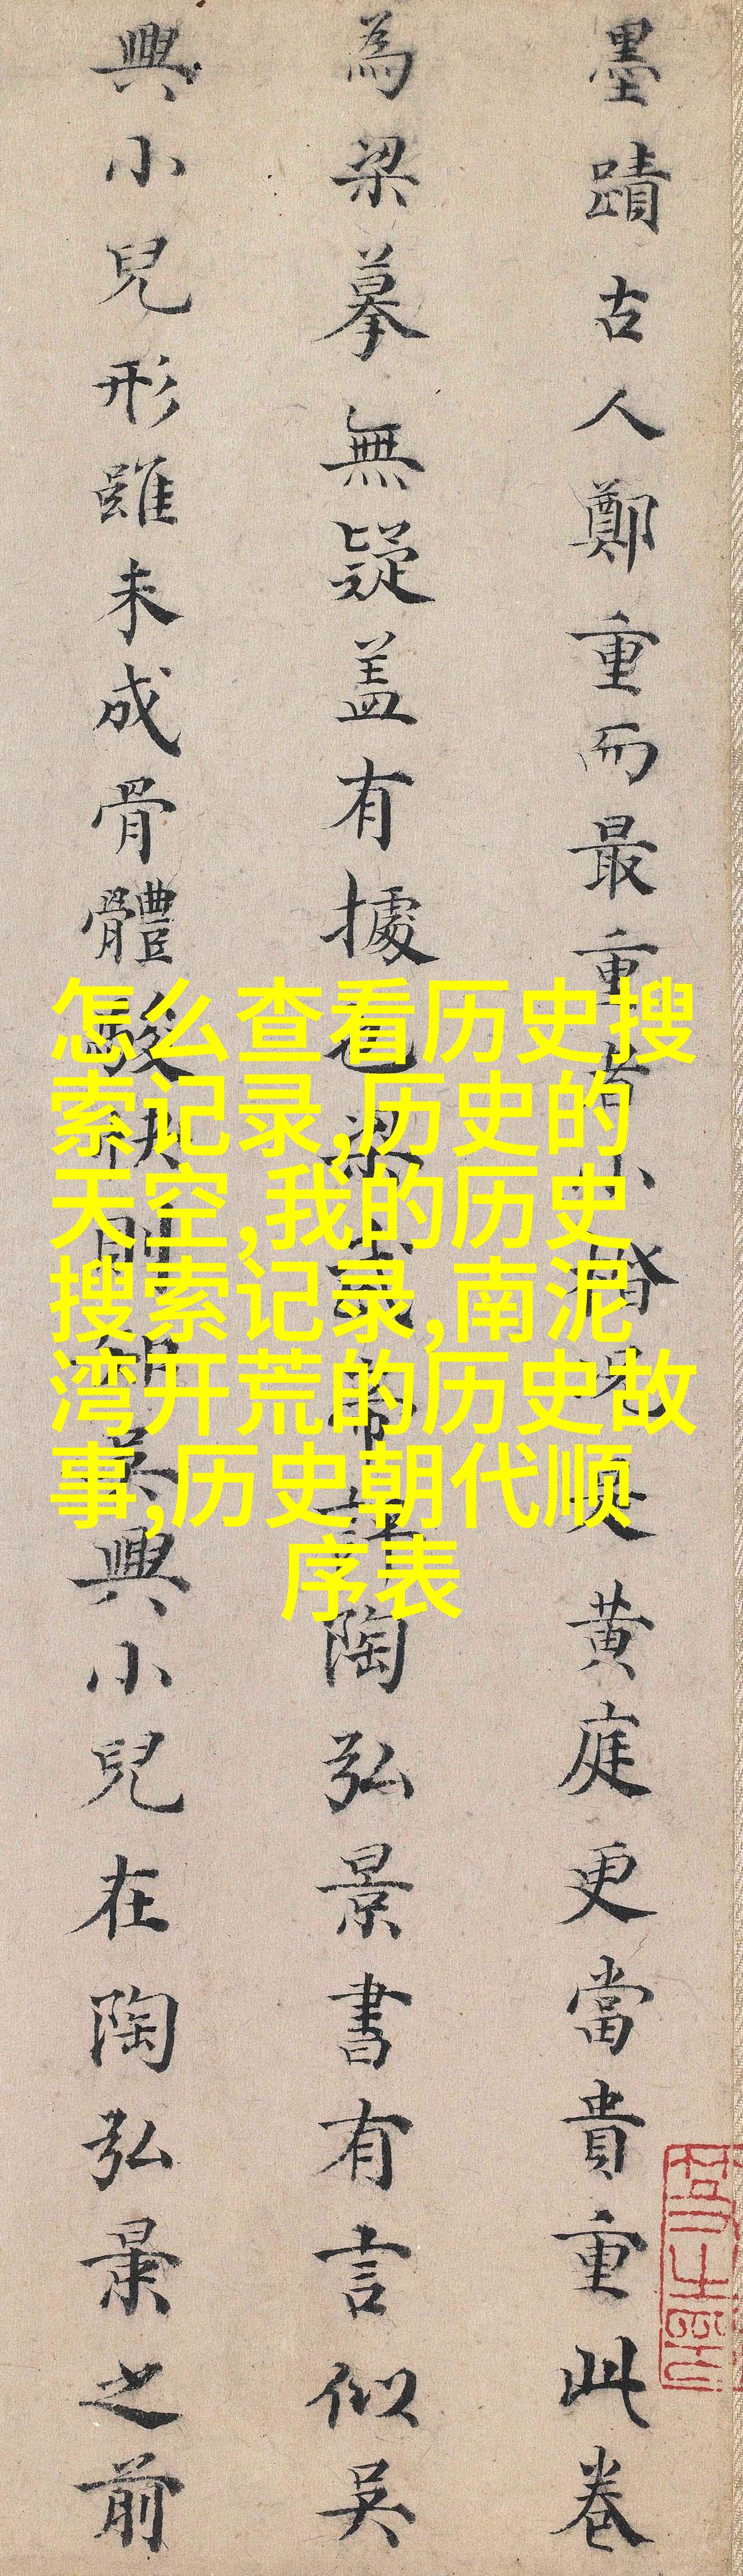 墨蹟古人鄭重而最重者小楷況是黄庭更當貴重此卷
為梁摹無疑盖有據也梁武帝評陶弘景書有言似吳
興小兒形雖未成骨體駿快則吳興小兒在陶弘景之前
怎么查看历史搜
索记录,历史的
天空,我的历史
搜索记录,南泥
湾开荒的历史故
事,历史朝代顺
序表